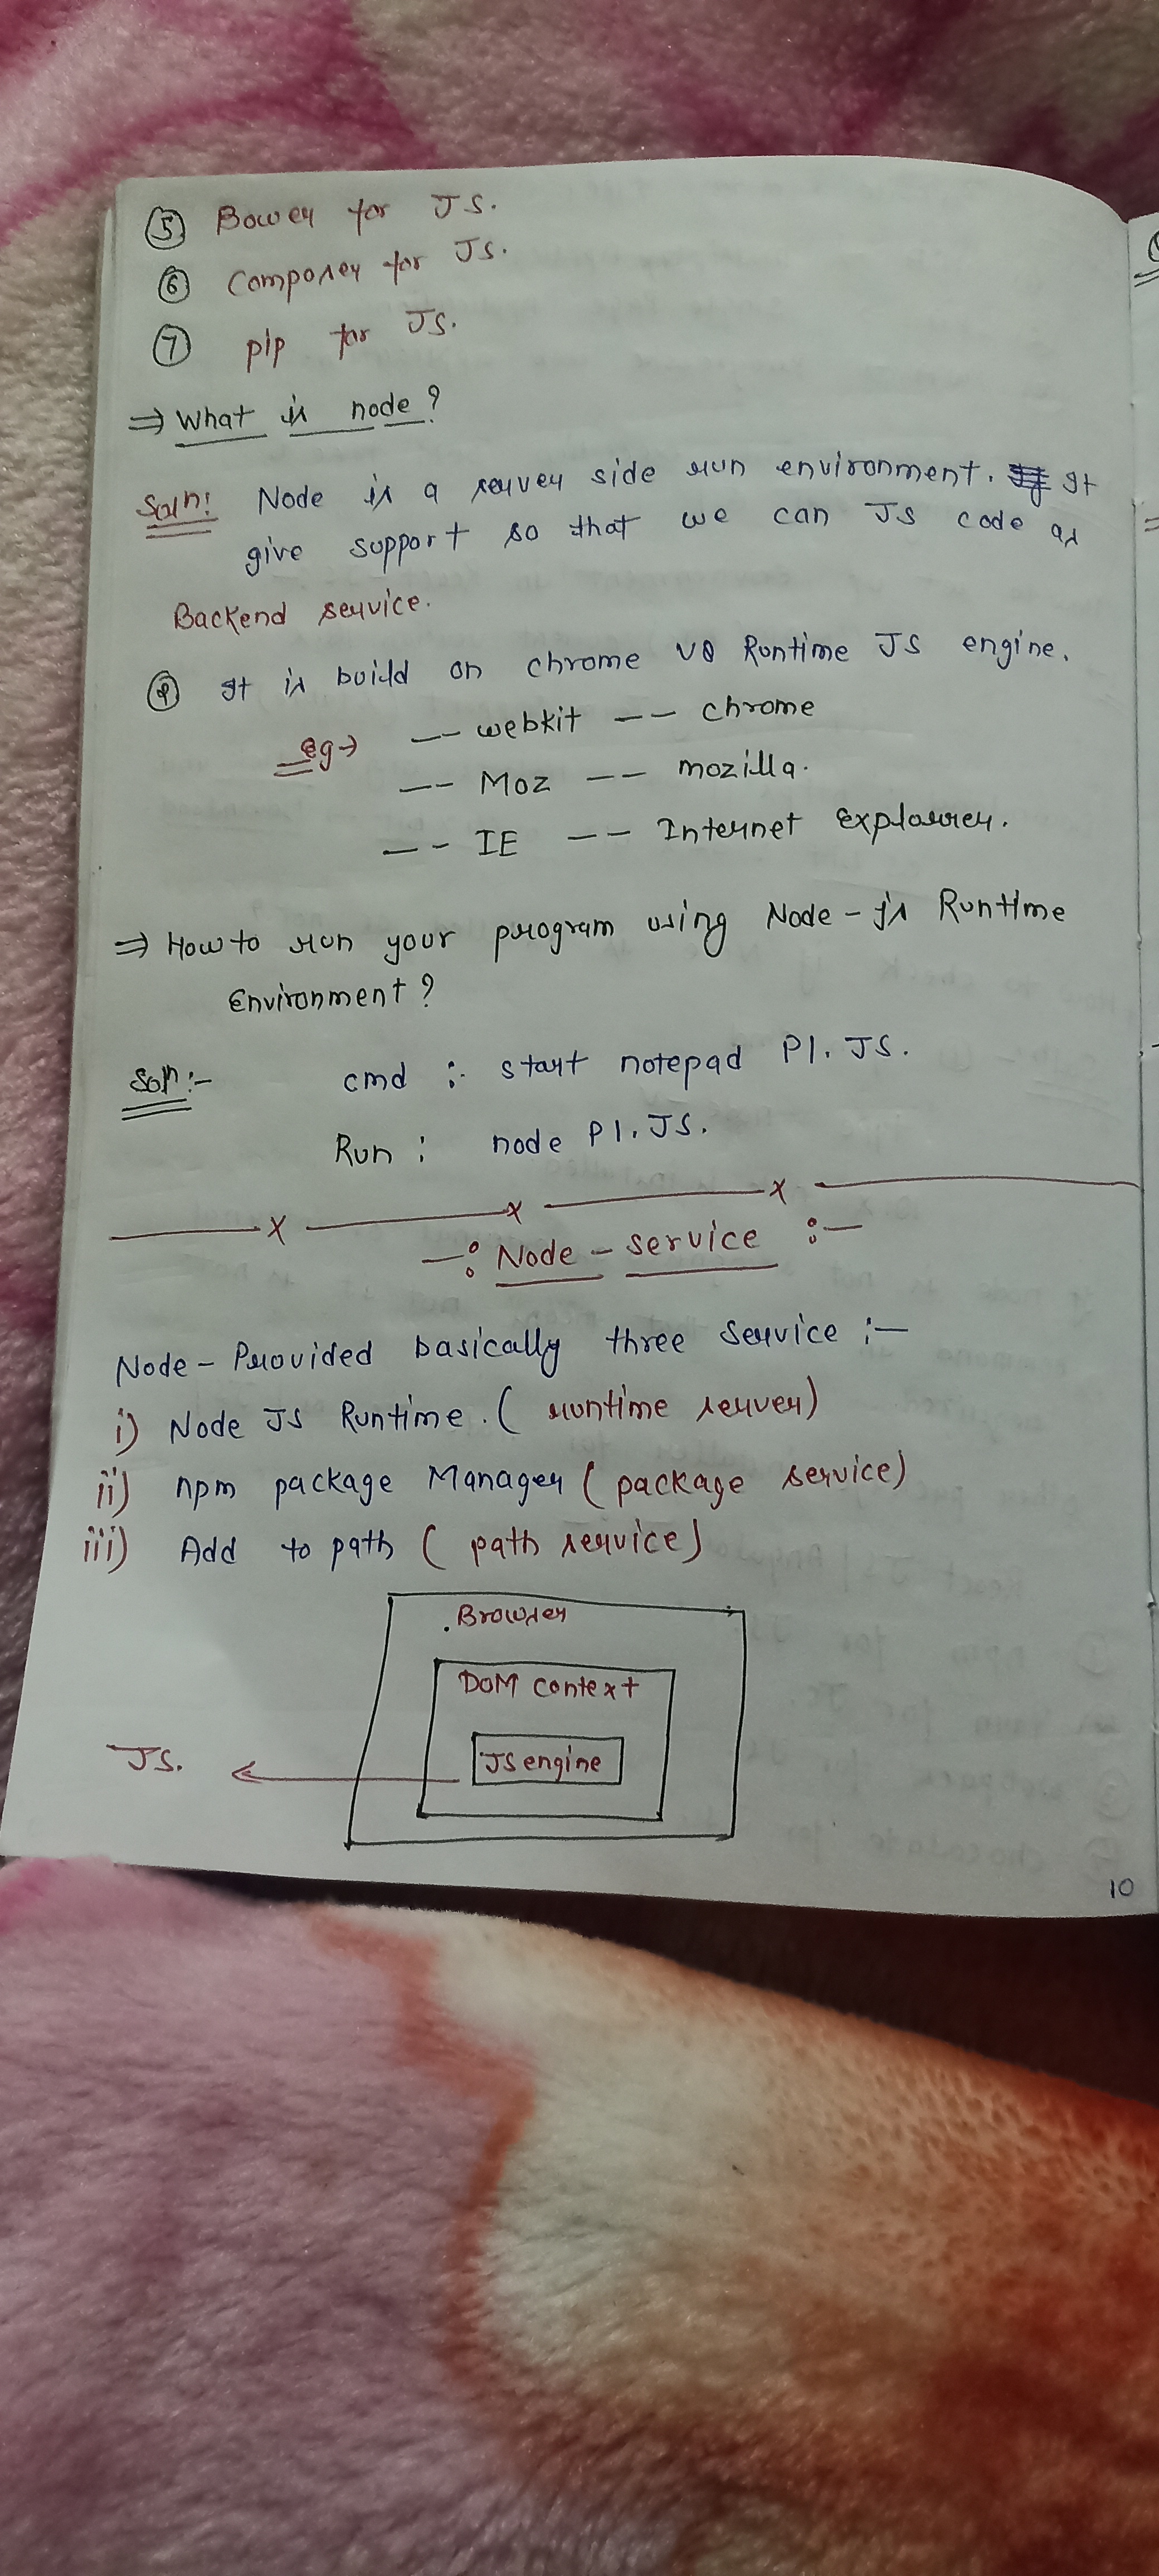 ⑤ Bower for JS.
⑥ Composer for JS.
⑦ pip for JS.
⇒ What is node?
Soln: Node is a server side run environment. It
give support so that we can JS code as
Backend service.
It is build on chrome V8 Runtime JS engine.
Eg → -- webkit -- chrome
-- Moz -- mozilla.
-- IE -- Internet Explorrer.
⇒ How to run your program using Node-js Runtime
Environment?
Soln:- cmd :- start notepad P1.JS.
Run : node P1.JS.
x x x
—: Node - service :—
Node - Provided basically three service :—
i) Node JS Runtime. (runtime server)
ii) npm package Manager (package service)
iii) Add to path (path service)
.Browser
DOM context
JS engine
JS. ←
10